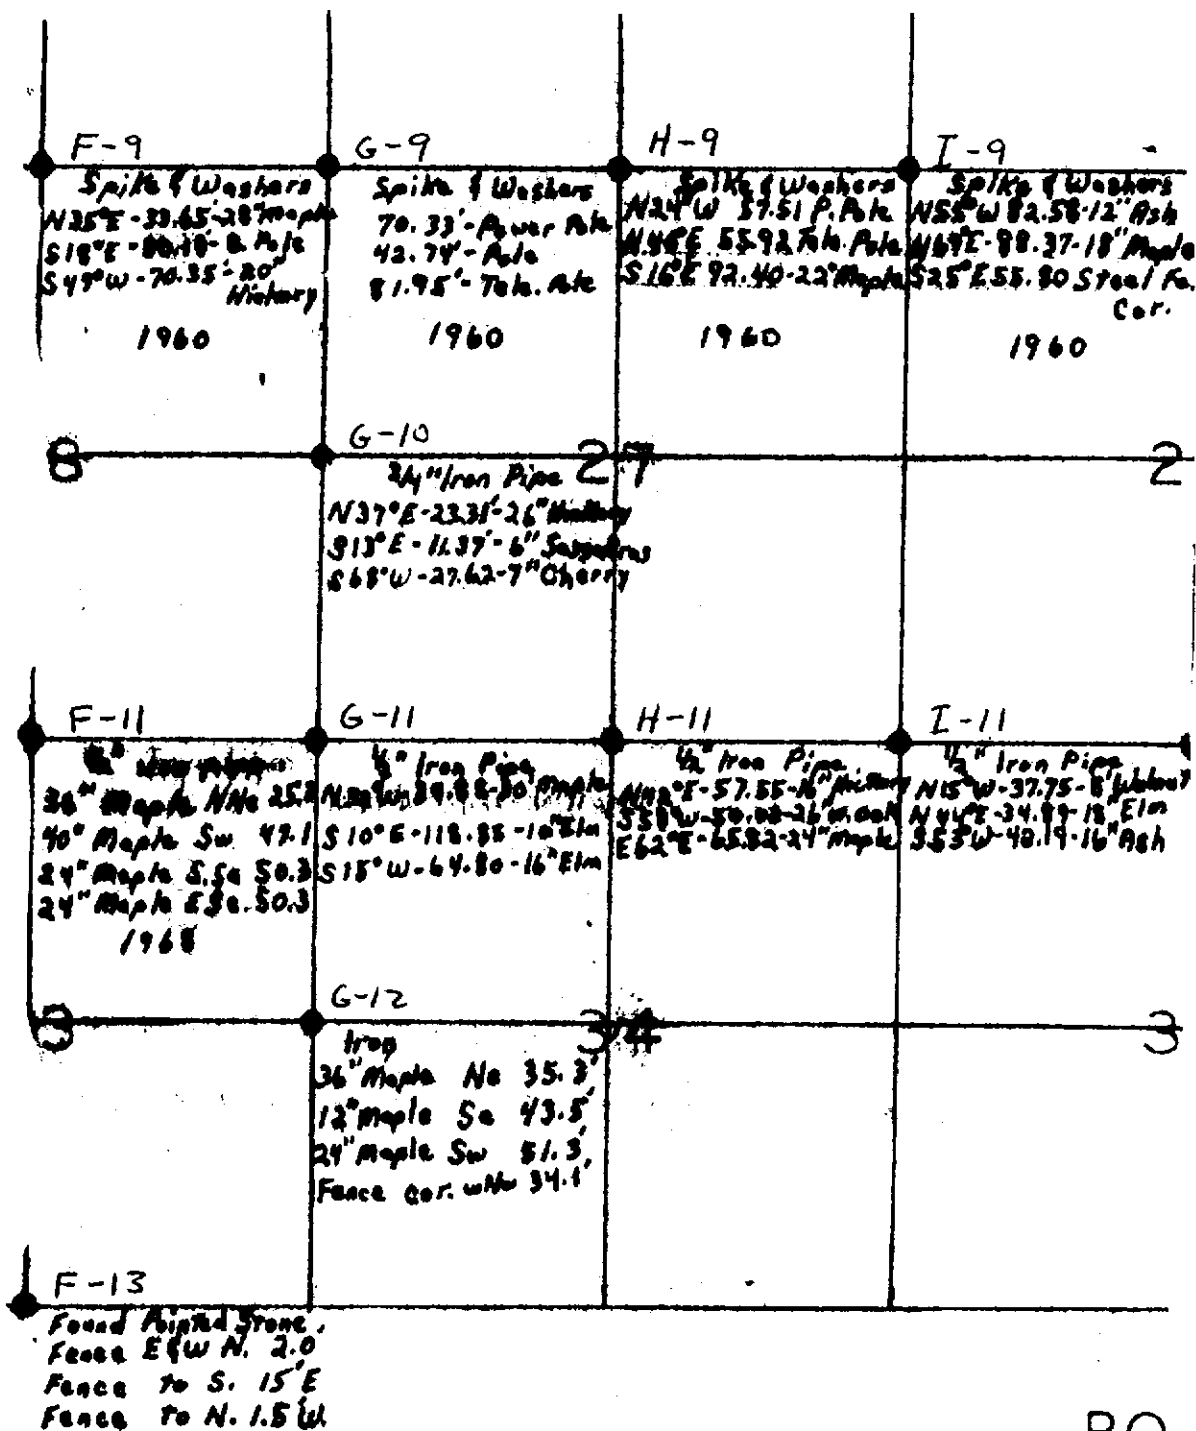 F-9
Spike & Washers
N25°E-33.65'-28" Maple
S18°E - P. Pole
S47°W-70.35'-20"
Hickory
1960
G-9
Spike & Washers
70.33'-Power Pole
42.74'-Pole
81.95'-Tele. Pole
1960
H-9
Spike & Washers
N24°W 57.51 P. Pole
E 55.92 Tele. Pole
S16°E 92.40-22" Maple
1960
I-9
Spike & Washers
N55°W 82.58-12" Ash
N69°E-88.37-18" Maple
S25°E 55.80 Steel Fe.
Cor.
1960
8
G-10
27
2
3/4" Iron Pipe
N37°E-23.31'-26" Hickory
S13°E-11.37'-6" Sassafras
S68°W-27.62-7" Cherry
F-11
1/2"
36" Maple NNe 25.2
40" Maple Sw 47.1
24" Maple S.Se 50.3
24" Maple ESe. 50.3
1968
G-11
1/2" Iron Pipe
Maple
S10°E-118.85-10" Elm
S15°W-64.80-16" Elm
H-11
1/2" Iron Pipe
N42°E-57.55-16" Hickory
E62°E-65.82-24" Maple
I-11
1/2" Iron Pipe
N15°W-37.75-8" Walnut
N44°E-34.89-18" Elm
S53°W-42.19-16" Ash
3
G-12
34
3
Iron
36" Maple Ne 35.3'
12" Maple Se 43.5'
24" Maple Sw 51.3'
Fence Cor. wNw 34.1'
F-13
Found Pointed Stone
Fence E&W N. 2.0'
Fence to S. 15'E
Fence to N. 1.5'W